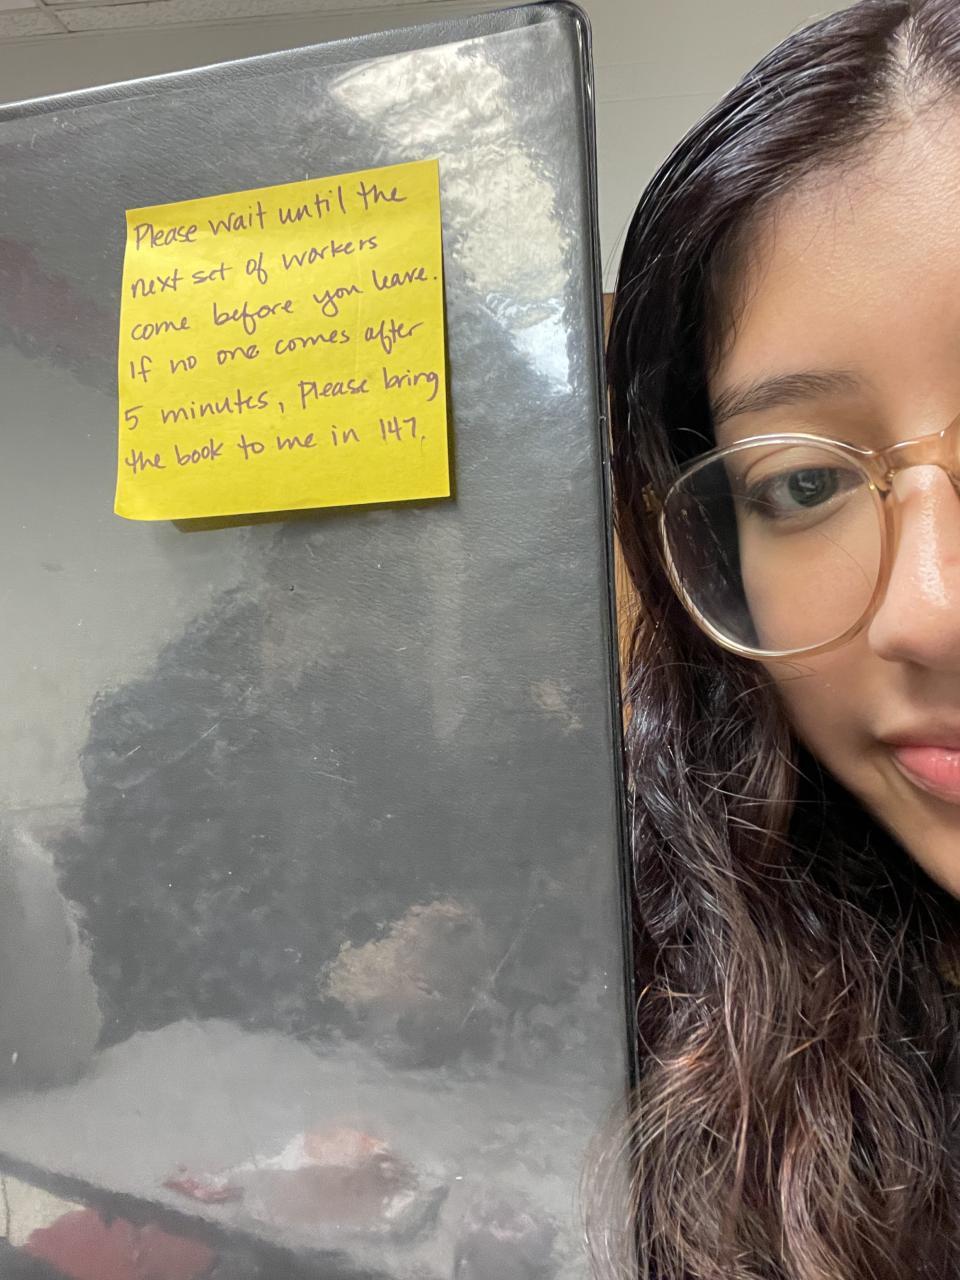 Please wait until the
next set of workers
come before you leave.
If no one comes after
5 minutes, Please bring
the book to me in 147.